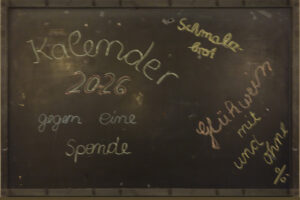 Kalender
2026
gegen eine
Spende
Schmalz-
brot
Glühwein
mit
und
ohne
%!